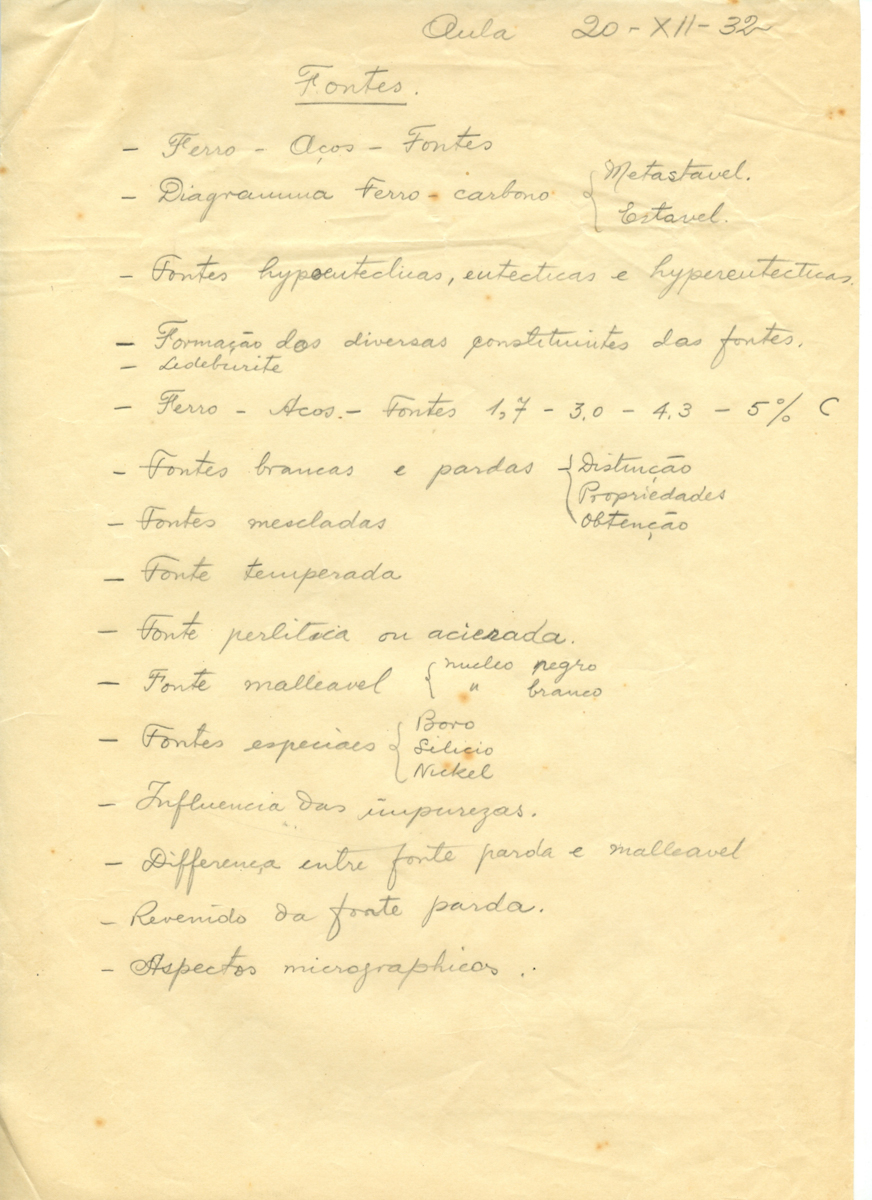 Aula 20-XII-32
Fontes.
- Ferro - Aços - Fontes
- Diagramma Ferro-carbono { Metastavel.
Estavel.
- Fontes hypoeutecticas, eutecticas e hypereutecticas.
- Formação dos diversas constituintes das fontes.
- Ledeburite
- Ferro - Acos. - Fontes 1,7 - 3.0 - 4.3 - 5% C
- Fontes brancas e pardas { Distinção
Propriedades
Obtenção
- Fontes mescladas
- Fonte temperada
- Fonte perlitica ou acierada.
- Fonte malleavel { nucleo negro
" branco
- Fontes especiaes { Boro
Silicio
Nickel
- Influencia das impurezas.
- Differença entre fonte parda e malleavel
- Revenido da fonte parda.
- Aspectos micrographicos.